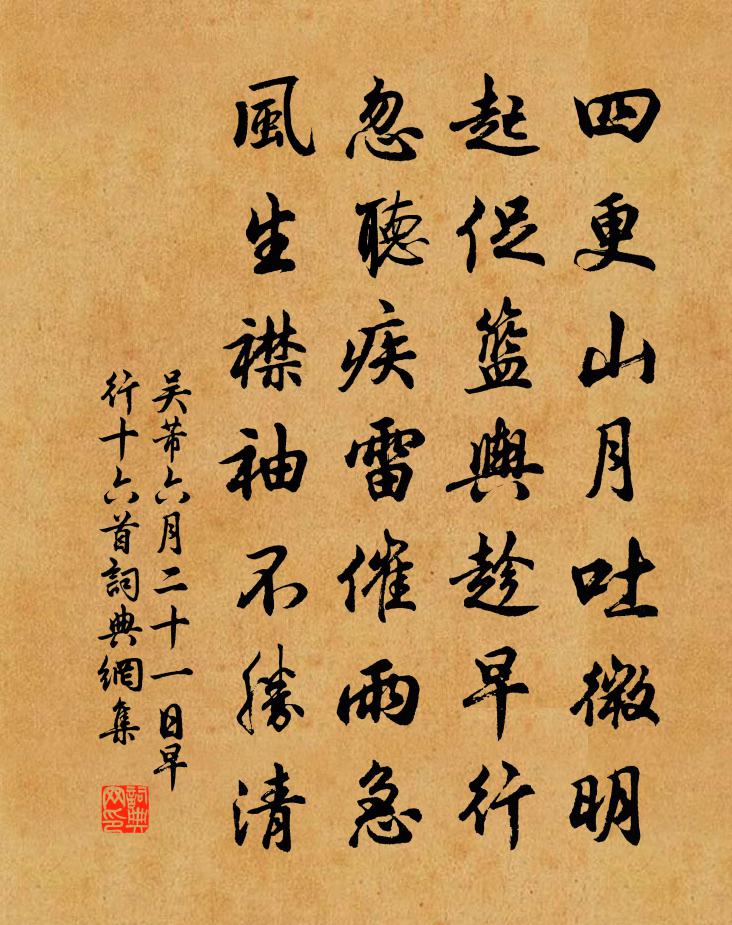 四更山月吐微明
起促籃輿趁早行
忽聽疾雷催雨急
風生襟袖不勝清
吴芾六月二十一日早
行十六首詞典網集
詞典
网印